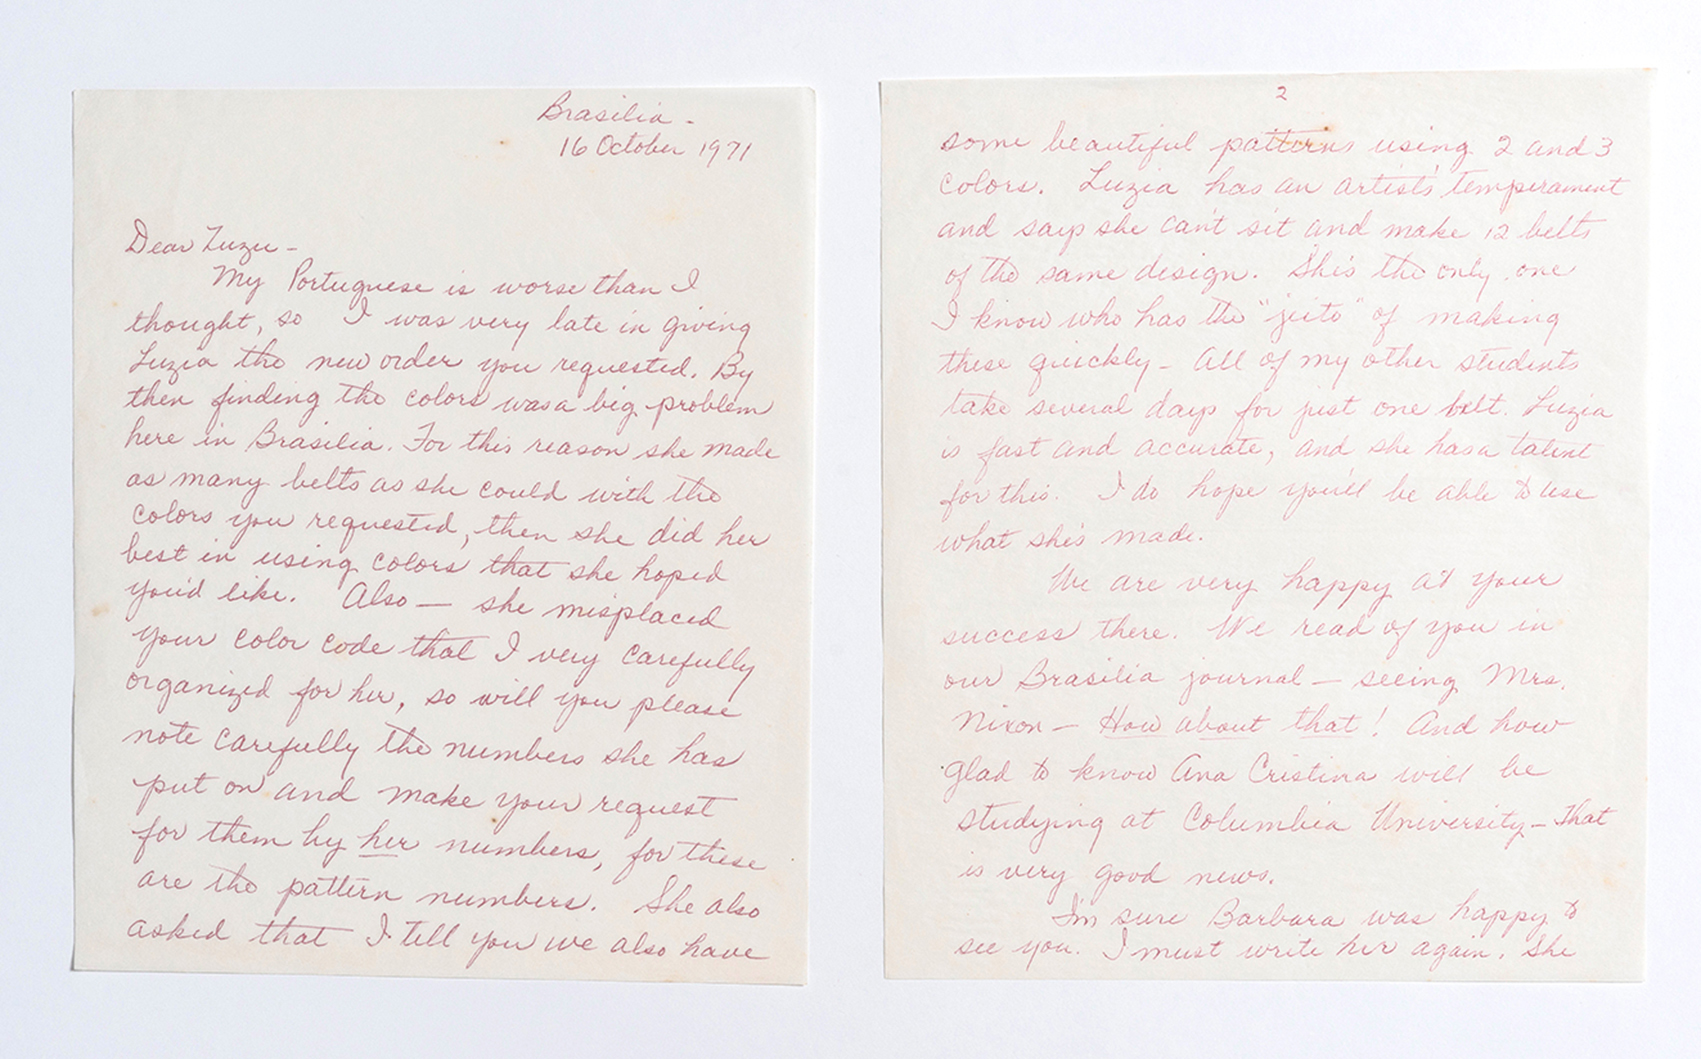 Brasilia -
16 October 1971
Dear Zuzu -
My Portuguese is worse than I
thought, so I was very late in giving
Luzia the new order you requested. By
then finding the colors was a big problem
here in Brasilia. For this reason she made
as many belts as she could with the
colors you requested, then she did her
best in using colors that she hoped
you'd like. Also — she misplaced
your color code that I very carefully
organized for her, so will you please
note carefully the numbers she has
put on and make your request
for them by her numbers, for these
are the pattern numbers. She also
asked that I tell you we also have
2
some beautiful patterns using 2 and 3
colors. Luzia has an artist's temperament
and says she can't sit and make 12 belts
of the same design. She's the only one
I know who has the "jeito" of making
these quickly - All of my other students
take several days for just one belt. Luzia
is fast and accurate, and she has a talent
for this. I do hope you'll be able to use
what she's made.
We are very happy at your
success there. We read of you in
our Brasilia journal — seeing Mrs.
Nixon — How about that! And how
glad to know Ana Cristina will be
studying at Columbia University - That
is very good news.
I'm sure Barbara was happy to
see you. I must write her again. She